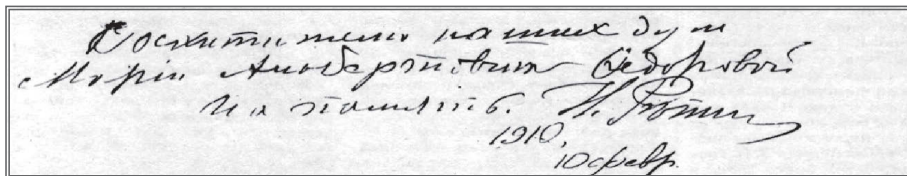 Восхитителю наших дум
Маріи Альбертовнѣ Ѳедоровой
На память. И. Рѣпин
1910,
10 февр.